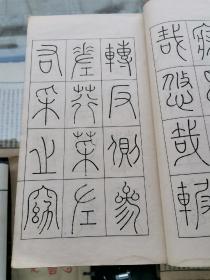 哉悠哉輾
轉反側參
差荇菜左
右采之窈